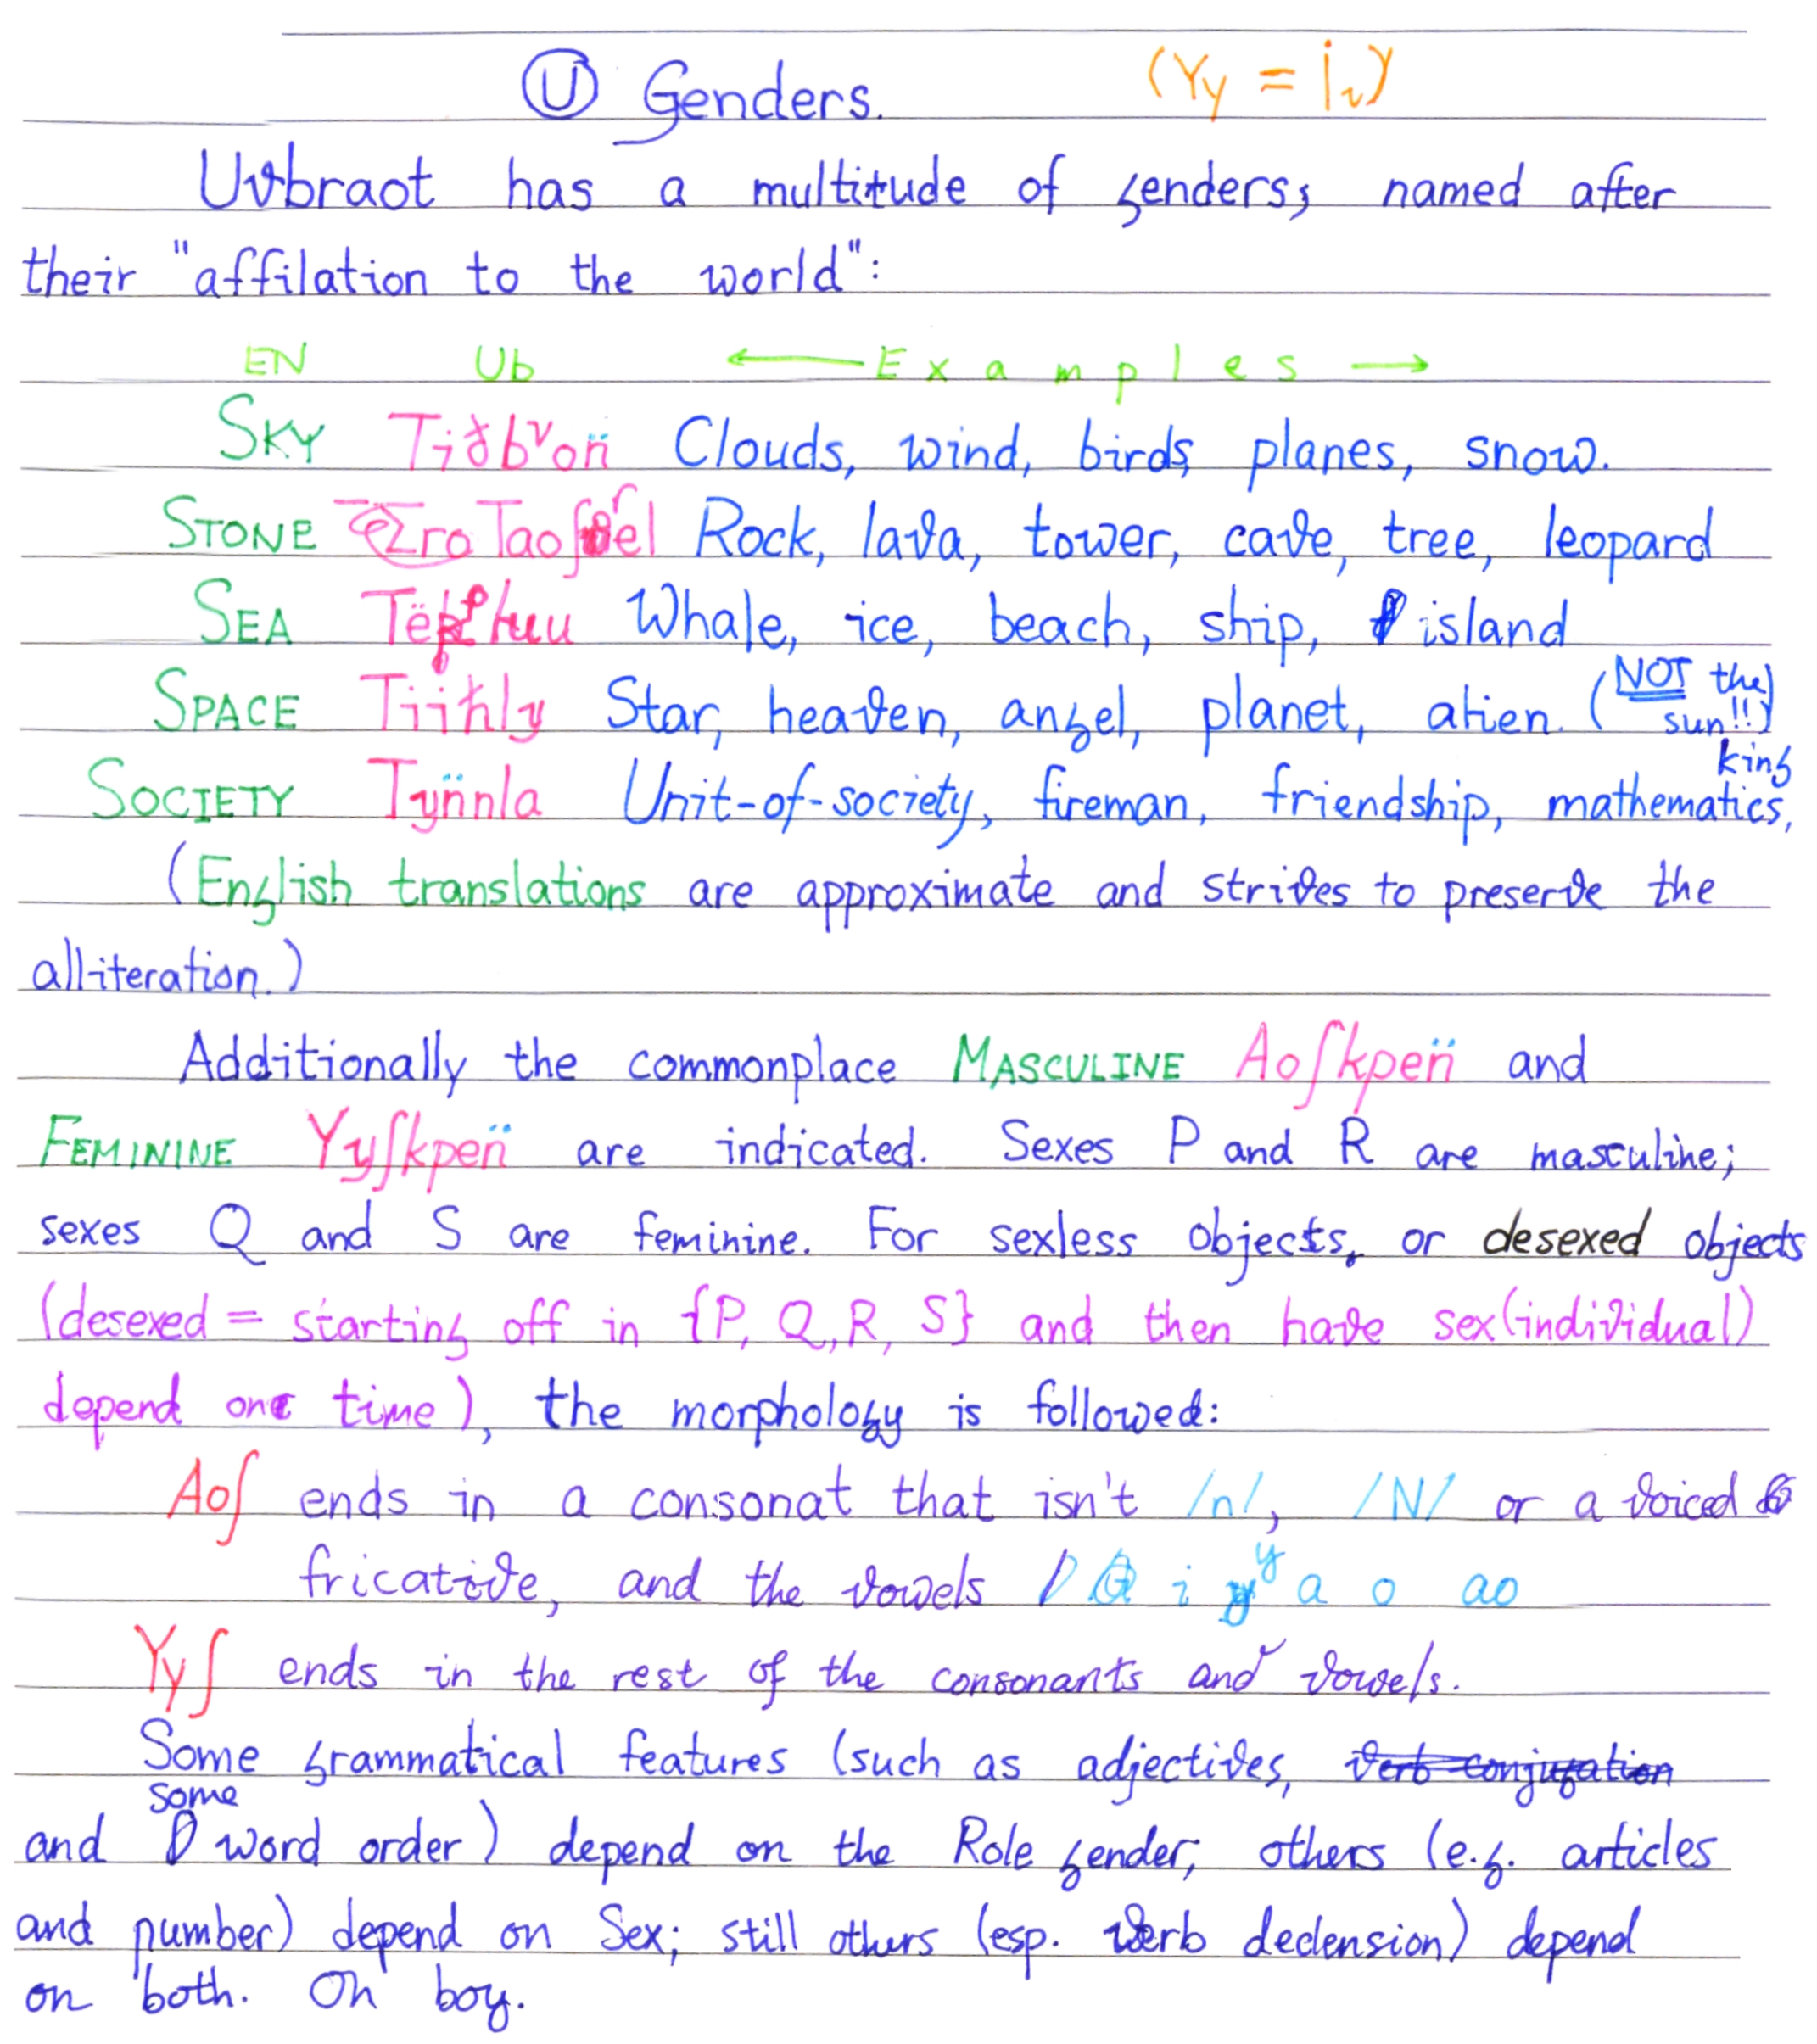 Ⓤ Genders. (Yy = i̇ν)
Uvbraot has a multitude of genders, named after
their "affilation to the world":
EN Ub ← Examples →
SKY Clouds, wind, birds, planes, snow.
STONE Rock, lava, tower, cave, tree, leopard
SEA Whale, ice, beach, ship, island
SPACE Tiiħly Star, heaven, angel, planet, alien. (NOT the sun!!)
SOCIETY Tyn̈nla Unit-of-society, fireman, friendship, mathematics, king
(English translations are approximate and strives to preserve the
alliteration.)
Additionally the commonplace MASCULINE Aoʃkpen̈ and
FEMININE Yyʃkpen̈ are indicated. Sexes P and R are masculine;
sexes Q and S are feminine. For sexless objects, or desexed objects
(desexed = starting off in {P, Q, R, S} and then have sex(individual)
depend on time), the morphology is followed:
Aoʃ ends in a consonat that isn't /n/, /N/ or a voiced
fricative, and the vowels i y a o ao
Yyʃ ends in the rest of the consonants and vowels.
Some grammatical features (such as adjectives, verb conjugation
and some word order) depend on the Role gender; others (e.g. articles
and number) depend on Sex; still others (esp. verb declension) depend
on both. Oh boy.